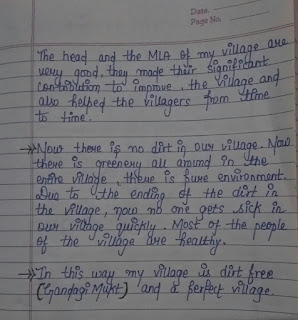 Date.
Page No.
The head and the MLA of my village are
very good, they made their significant
contribution to improve the village and
also helped the villagers from time
to time.
→ Now there is no dirt in our village. Now
there is greenery all around in the
entire village, there is pure environment.
Due to the ending of the dirt in
the village, now no one gets sick in
our village quickly. Most of the people
of the village are healthy.
→ In this way my village is dirt free
(Gandagi Mukt) and a perfect village.